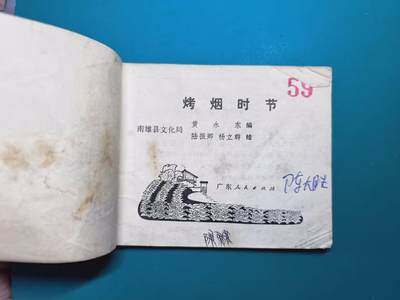 59
烤烟时节
南雄县文化局 黄永东 编
陆振郊 杨立群 绘
广东人民出版社